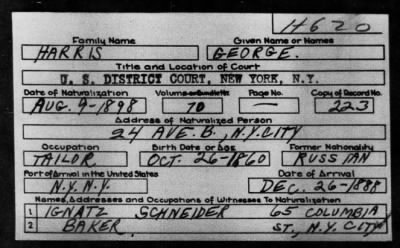 H620
Family Name Given Name or Names
HARRIS GEORGE.
Title and Location of Court
U. S. DISTRICT COURT, NEW YORK, N.Y.
Date of Naturalization Volume or Bundle No. Page No. Copy of Record No.
AUG. 9-1898 70 — 223
Address of Naturalized Person
24 AVE. B., N.Y. CITY
Occupation Birth Date or Age Former Nationality
TAILOR OCT. 26-1860 RUSSIAN
Port of Arrival in the United States Date of Arrival
N.Y. N.Y. DEC. 26-1888
Names, Addresses and Occupations of Witnesses To Naturalization
1 IGNATZ SCHNEIDER 65 COLUMBIA
2 BAKER ST., N.Y. CITY